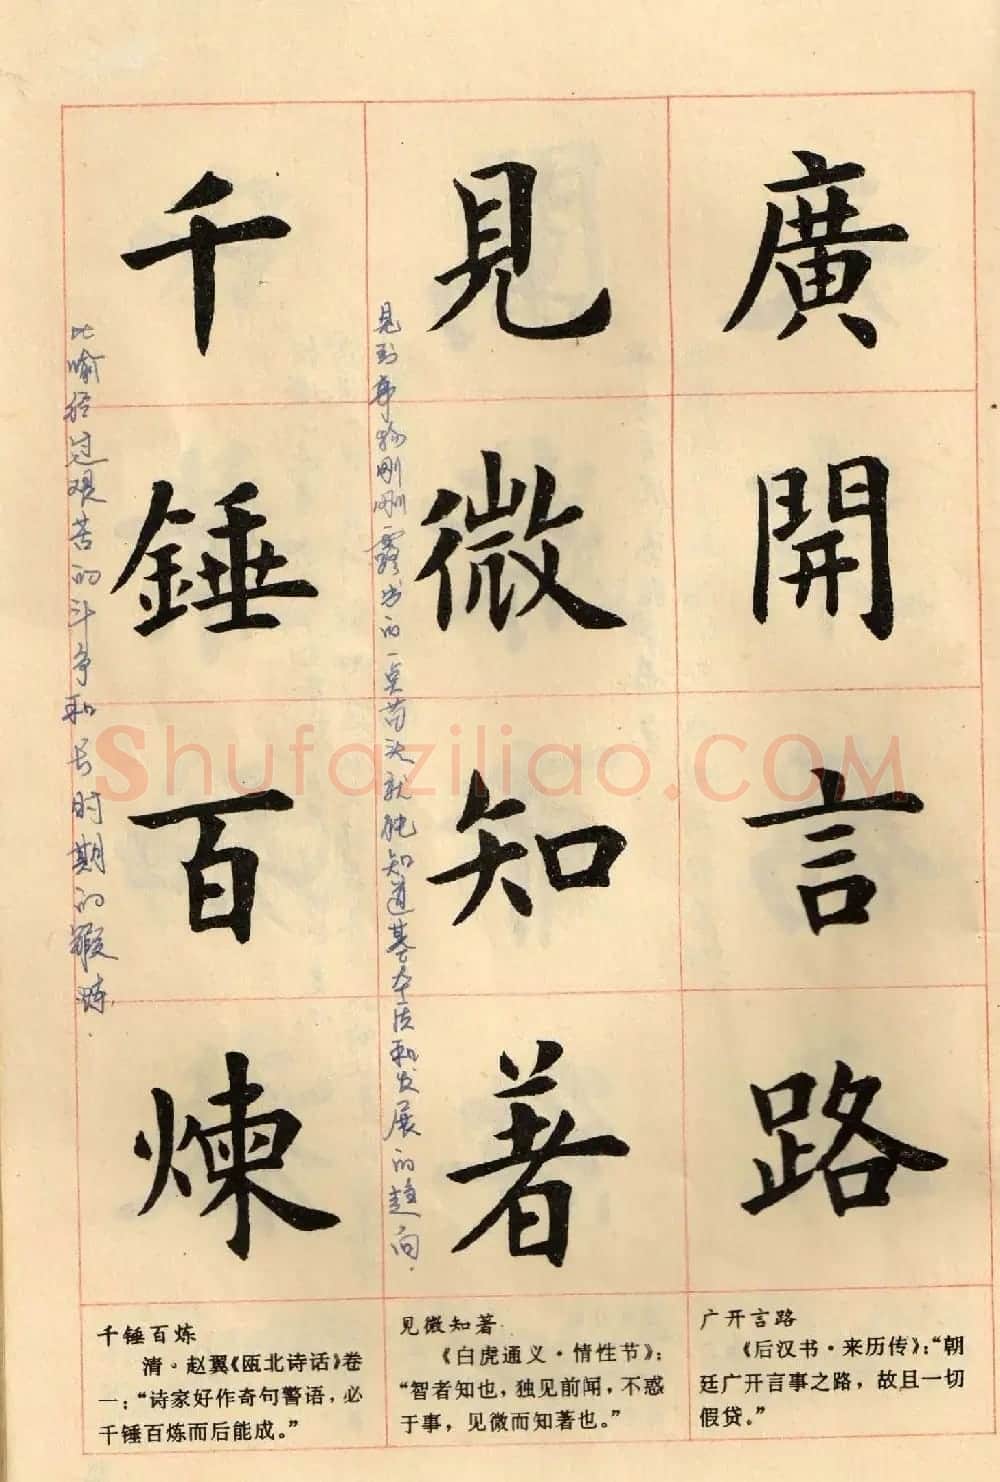 廣開言路
見微知著
千錘百煉
见到事物刚刚露出的一点苗头就能知道基本性质和发展的趋向.
比喻经过艰苦的斗争和长时期的锻炼.
Shufaziliao.COM
广开言路
《后汉书·来历传》:“朝
廷广开言事之路，故且一切
假贷。”
见微知著
《白虎通义·情性节》:
“智者知也，独见前闻，不惑
于事，见微而知著也。”
千锤百炼
清·赵翼《瓯北诗话》卷
一:“诗家好作奇句警语，必
千锤百炼而后能成。”